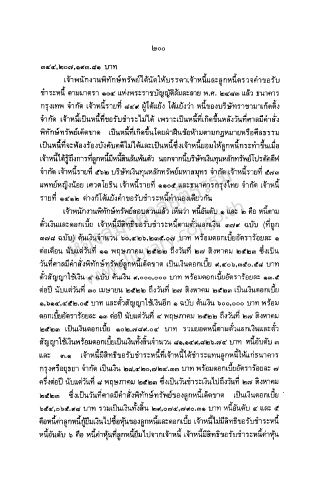 ๒๐๐
๓๔๔,๒๐๗,๑๙๓.๘๑ บาท
เจ้าพนักงานพิทักษ์ทรัพย์ได้นัดให้บรรดาเจ้าหนี้และลูกหนี้ตรวจคำขอรับ
ชำระหนี้ ตามมาตรา ๑๐๔ แห่งพระราชบัญญัติล้มละลาย พ.ศ. ๒๔๘๓ แล้ว ธนาคาร
กรุงเทพ จำกัด เจ้าหนี้รายที่ ๘๔๙ ผู้โต้แย้ง โต้แย้งว่า หนี้ของบริษัทราชาเงินทุน
จำกัด เจ้าหนี้เป็นหนี้ที่ขอรับชำระไม่ได้ เพราะเป็นหนี้ที่เกิดขึ้นหลังวันที่ศาลมีคำสั่ง
พิทักษ์ทรัพย์เด็ดขาด เป็นหนี้ที่เกิดขึ้นโดยฝ่าฝืนข้อห้ามตามกฎหมายหรือศีลธรรม
เป็นหนี้ที่จะฟ้องร้องบังคับคดีไม่ได้และเป็นหนี้ซึ่งเจ้าหนี้ยอมให้ลูกหนี้กระทำขึ้นเมื่อ
เจ้าหนี้ได้รู้ถึงการที่ลูกหนี้มีหนี้สินล้นพ้นตัว นอกจากนี้บริษัทเงินทุนหลักทรัพย์ไปรคัดคีท์
จำกัด เจ้าหนี้รายที่ ๕๖๒ บริษัทเงินทุนหลักทรัพย์มหาสมุทร จำกัด เจ้าหนี้รายที่ ๕๗๓
แพทย์หญิงน้อย เศวตโยธิน เจ้าหนี้รายที่ ๑๑๐๕ และธนาคารกรุงไทย จำกัด เจ้าหนี้
รายที่ ๑๔๑๒ ต่างก็โต้แย้งคำขอรับชำระหนี้ทำนองเดียวกัน
เจ้าพนักงานพิทักษ์ทรัพย์สอบสวนแล้ว เห็นว่า หนี้อันดับ ๑ และ ๒ คือ หนี้ตาม
ตั๋วเงินและดอกเบี้ย เจ้าหนี้มีสิทธิขอรับชำระหนี้ตามตั๋วแลกเงิน ๗๗๔ ฉบับ (ที่ถูก
๗๗๘ ฉบับ) ต้นเงินจำนวน ๖๐,๔๒๖,๒๓๕.๐๗ บาท พร้อมดอกเบี้ยอัตราร้อยละ ๑
ต่อเดือน นับแต่วันที่ ๑๑ พฤษภาคม ๒๕๒๒ ถึงวันที่ ๒๗ สิงหาคม ๒๕๒๓ ซึ่งเป็น
วันที่ศาลมีคำสั่งพิทักษ์ทรัพย์ลูกหนี้เด็ดขาด เป็นเงินดอกเบี้ย ๙,๔๐๖,๓๕๐.๕๔ บาท
ตั๋วสัญญาใช้เงิน ๔ ฉบับ ต้นเงิน ๙,๐๐๐,๐๐๐ บาท พร้อมดอกเบี้ยอัตราร้อยละ ๑๓.๕
ต่อปี นับแต่วันที่ ๓๐ เมษายน ๒๕๒๒ ถึงวันที่ ๒๗ สิงหาคม ๒๕๒๓ เป็นเงินดอกเบี้ย
๑,๖๑๔,๔๕๒.๐๕ บาท และตั๋วสัญญาใช้เงินอีก ๑ ฉบับ ต้นเงิน ๖๐๐,๐๐๐ บาท พร้อม
ดอกเบี้ยอัตราร้อยละ ๑๓ ต่อปี นับแต่วันที่ ๔ พฤษภาคม ๒๕๒๒ ถึงวันที่ ๒๗ สิงหาคม
๒๕๒๓ เป็นเงินดอกเบี้ย ๑๐๒,๗๘๙.๐๔ บาท รวมยอดหนี้ตามตั๋วแลกเงินและตั๋ว
สัญญาใช้เงินพร้อมดอกเบี้ยเป็นเงินทั้งสิ้นจำนวน ๘๑,๑๔๙,๘๒๖.๗๔ บาท หนี้อันดับ ๓
และ ๓.๑ เจ้าหนี้มีสิทธิขอรับชำระหนี้ที่เจ้าหนี้ได้ชำระแทนลูกหนี้ให้แก่ธนาคาร
กรุงศรีอยุธยา จำกัด เป็นเงิน ๒๘,๔๒๐,๗๒๔.๓๓ บาท พร้อมดอกเบี้ยอัตราร้อยละ ๗
ครึ่งต่อปี นับแต่วันที่ ๘ พฤษภาคม ๒๕๒๓ ซึ่งเป็นวันชำระเงินไปถึงวันที่ ๒๗ สิงหาคม
๒๕๒๓ ซึ่งเป็นวันที่ศาลมีคำสั่งพิทักษ์ทรัพย์ของลูกหนี้เด็ดขาด เป็นเงินดอกเบี้ย
๖๕๔,๐๖๕.๙๘ บาท รวมเป็นเงินทั้งสิ้น ๒๙,๐๗๔,๗๙๐.๓๑ บาท หนี้อันดับ ๔ และ ๕
คือหนี้ค่าลูกหนี้กู้ยืมเงินไปซื้อหุ้นของลูกหนี้และดอกเบี้ย เจ้าหนี้ไม่มีสิทธิขอรับชำระหนี้
หนี้อันดับ ๖ คือ หนี้ค่าหุ้นที่ลูกหนี้ยืมไปจากเจ้าหนี้ เจ้าหนี้มีสิทธิขอรับชำระหนี้ค่าหุ้น